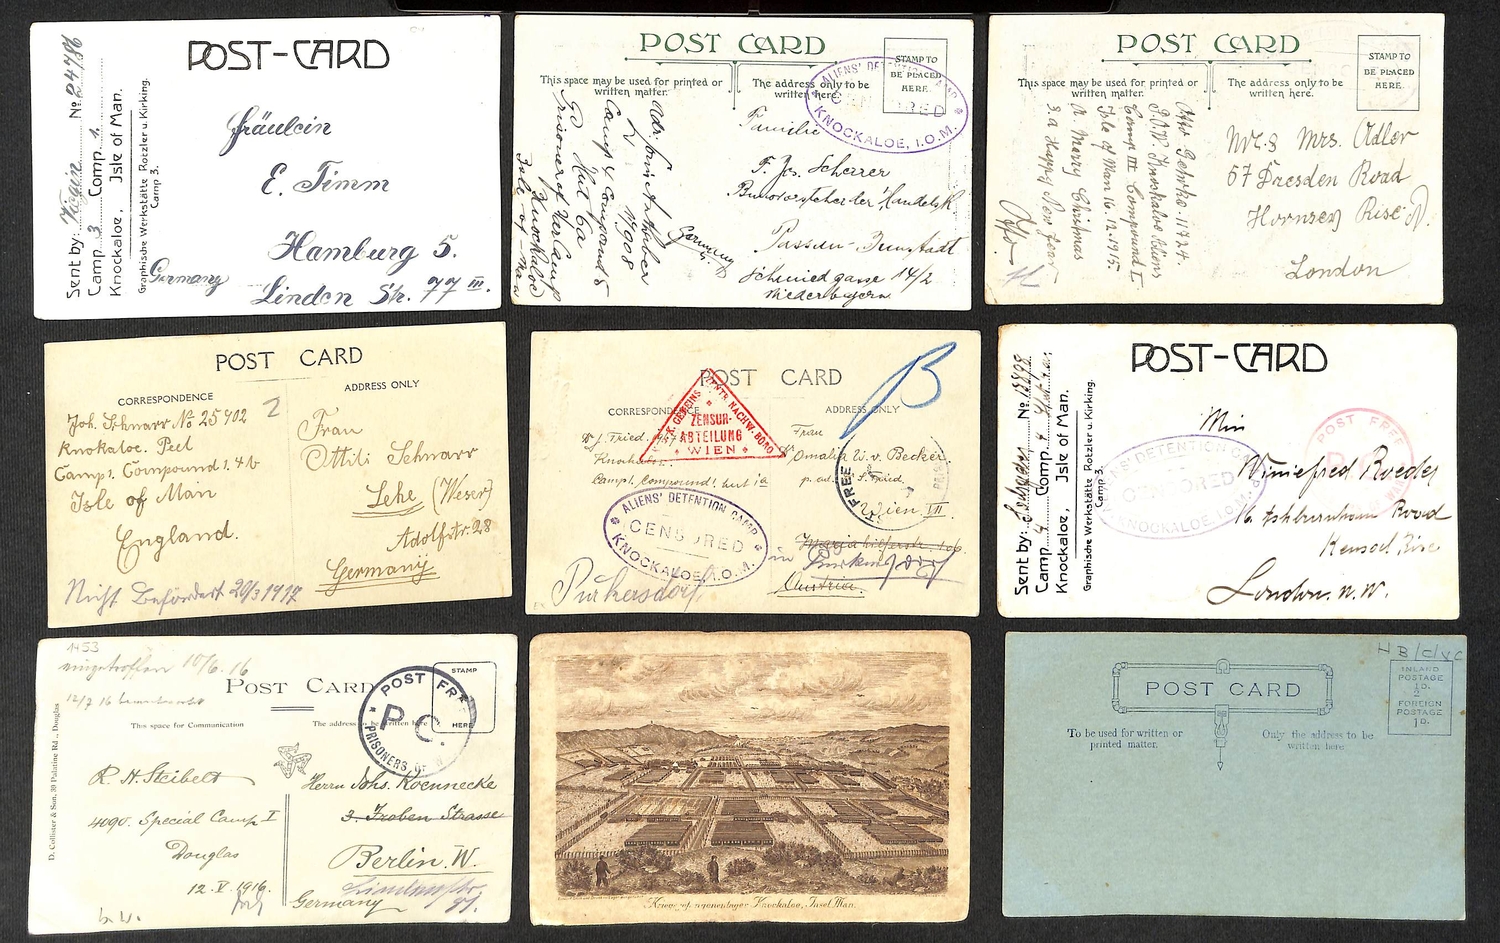 POST-CARD
Sent by: No. 24786
Camp 3 Comp. 1.
Knockaloe, Isle of Man.
Graphische Werkstätte Rotzler u. Kirking.
Camp 3.
Fräulein
E. Timm
Hamburg 5.
Linden Str. 77 III.
Germany
POST CARD
This space may be used for printed or
written matter.
The address only to be
written here.
STAMP TO
BE PLACED
HERE.
ALIENS' DETENTION CAMP
CENSORED
KNOCKALOE, I.O.M.
Camp 4 Compound 5
Hut 6a
Prisoner of War Camp
Knockaloe
Isle-of-Man
Familie
F. Jos. Scherrer
Passau-Innstadt
Schmiedgasse 14/2
Niederbayern
Germany
POST CARD
This space may be used for printed or
written matter.
The address only to be
written here.
STAMP TO
BE PLACED
HERE.
Otto Gehrke 11724.
P.O.W. Knockaloe Aliens
Camp III Compound I
Isle of Man 16.12.1915.
A Merry Christmas
& a Happy New Year
Otto
Mr. & Mrs. Adler
67 Dresden Road
Hornsey Rise N.
London
POST CARD
CORRESPONDENCE
ADDRESS ONLY
Joh. Schnarr No 25702
Knokaloe. Peel
Camp 1. Compound 1. 4b
Isle of Man
England.
2
Frau
Ottili Schnarr
Lehe (Weser)
Adolfstr. 28
Germany
Nicht Befördert 20/3 1917
POST CARD
CORRESPONDENCE
ADDRESS ONLY
B
ZENSUR-
ABTEILUNG
WIEN
J. Fried.
Knockaloe.
Camp 1, Compound 1. hut 1a
ALIENS' DETENTION CAMP
CENSORED
KNOCKALOE, I.O.M.
Purkersdorf
Frau
Amalia W. v. Becker
Wien VII.
in Purkersdorf
Austria.
FREE
POST-CARD
Sent by: No. 15898
Camp 4 Comp. 4
Knockaloe, Isle of Man.
Graphische Werkstätte Rotzler u. Kirking.
Camp 3.
ALIENS' DETENTION CAMP
CENSORED
KNOCKALOE, I.O.M.
POST FREE
Miss
Winiefred Roeder
16. Ashburnham Road
Kensal Rise
London. N.W.
1453
eingetroffen 10/6. 16
POST CARD
This space for Communication
The address to be written here
STAMP
HERE
POST FREE
P.C.
PRISONERS OF W
D. Collister & Son, 30 Palatine Rd., Douglas
R. H. Steibelt
4090. Special Camp I
Douglas
12. V. 1916.
Herrn Johs. Koennecke
3. Froben Strasse
Berlin. W.
Germany
Kriegsgefangenenlager Knockaloe, Insel Man.
H B/C/VC
POST CARD
To be used for written or
printed matter.
Only the address to be
written here
INLAND
POSTAGE
½D.
FOREIGN
POSTAGE
1D.